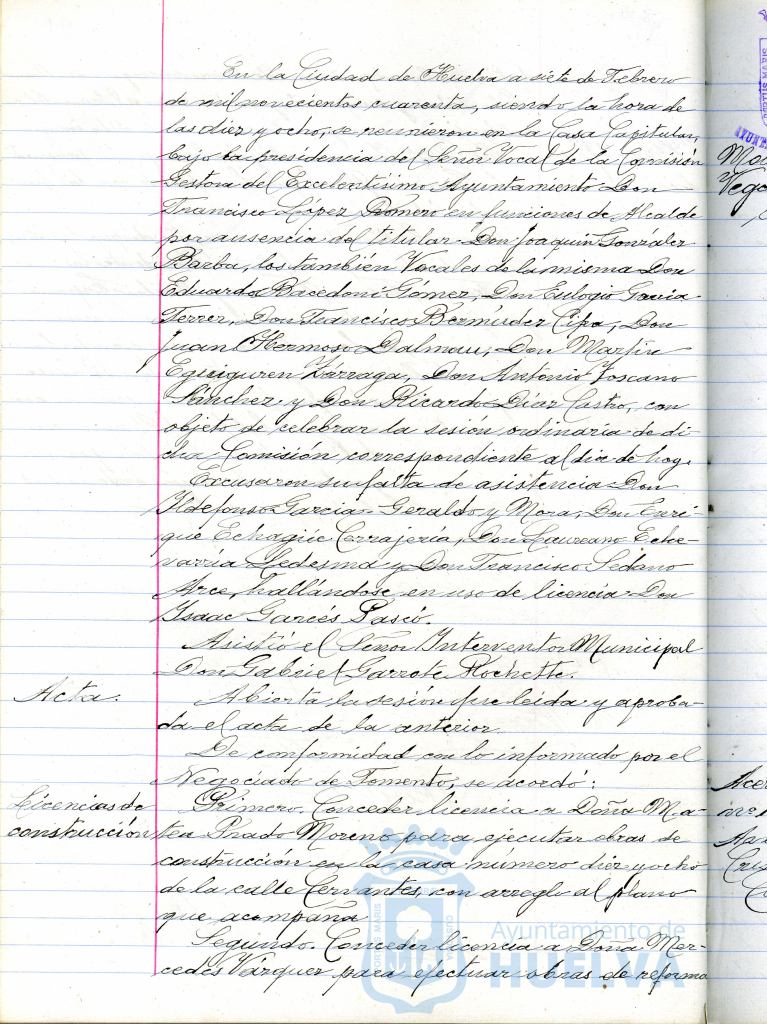 En la Ciudad de Huelva a siete de Febrero
de mil novecientos cuarenta, siendo la hora de
las diez y ocho, se reunieron en la Casa Capitular,
bajo la presidencia del Señor Vocal de la Comisión
Gestora del Excelentísimo Ayuntamiento Don
Francisco López Romero en funciones de Alcalde
por ausencia del titular Don Joaquín González
Barba, los también Vocales de la misma Don
Eduardo Bacedoni Gómez, Don Eulogio Garcia
Ferrer, Don Francisco Bermúdez Cipa, Don
Juan Hermoso Dalmau, Don Martín
Eguiguren Lizaga, Don Antonio Toscano
Sánchez y Don Ricardo Díaz Castro, con
objeto de celebrar la sesión ordinaria de di-
cha Comisión correspondiente al día de hoy.
Excusaron su falta de asistencia Don
Ildefonso Garcia-Geraldo y Mora, Don Enri
que Echagüe Cerrajería, Don Laureano Eche-
varría Ledesma y Don Francisco Sedano
Arce, hallándose en uso de licencia Don
Isaac Garcés Pascó.
Asistió el Señor Interventor Municipal
Don Gabriel Garrote Rochette.
Acta.
Abierta la sesión fue leida y aproba-
da el acta de la anterior.
De conformidad con lo informado por el
Negociado de Fomento, se acordó:
Licencias de
construcción
Primero. Conceder licencia a Doña Ma-
tea Prado Moreno para ejecutar obras de
construcción en la casa numero diez y ocho
de la calle Cervantes, con arreglo al plano
que acompaña.
Segundo. Conceder licencia a Doña Mer-
cedes Vázquez para efectuar obras de reforma
Ayuntamiento de
HUELVA